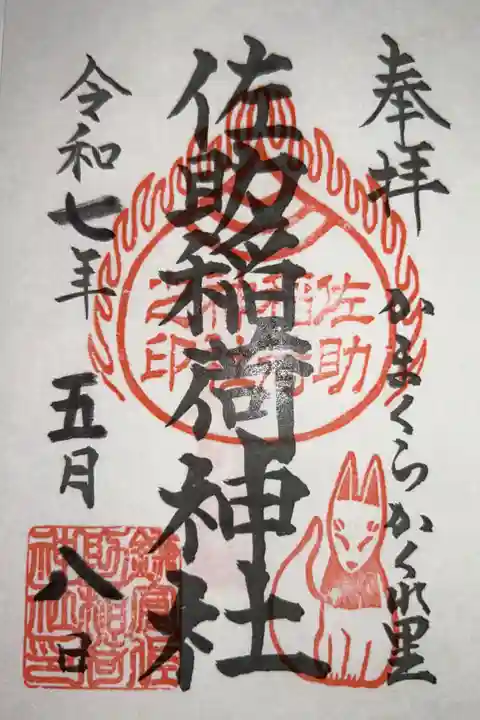 奉拝
かまくらかくれ里
佐助稲荷神社
佐助
稲荷
之印
令和七年
五月八日
鎌倉佐
助稲荷
神社之印